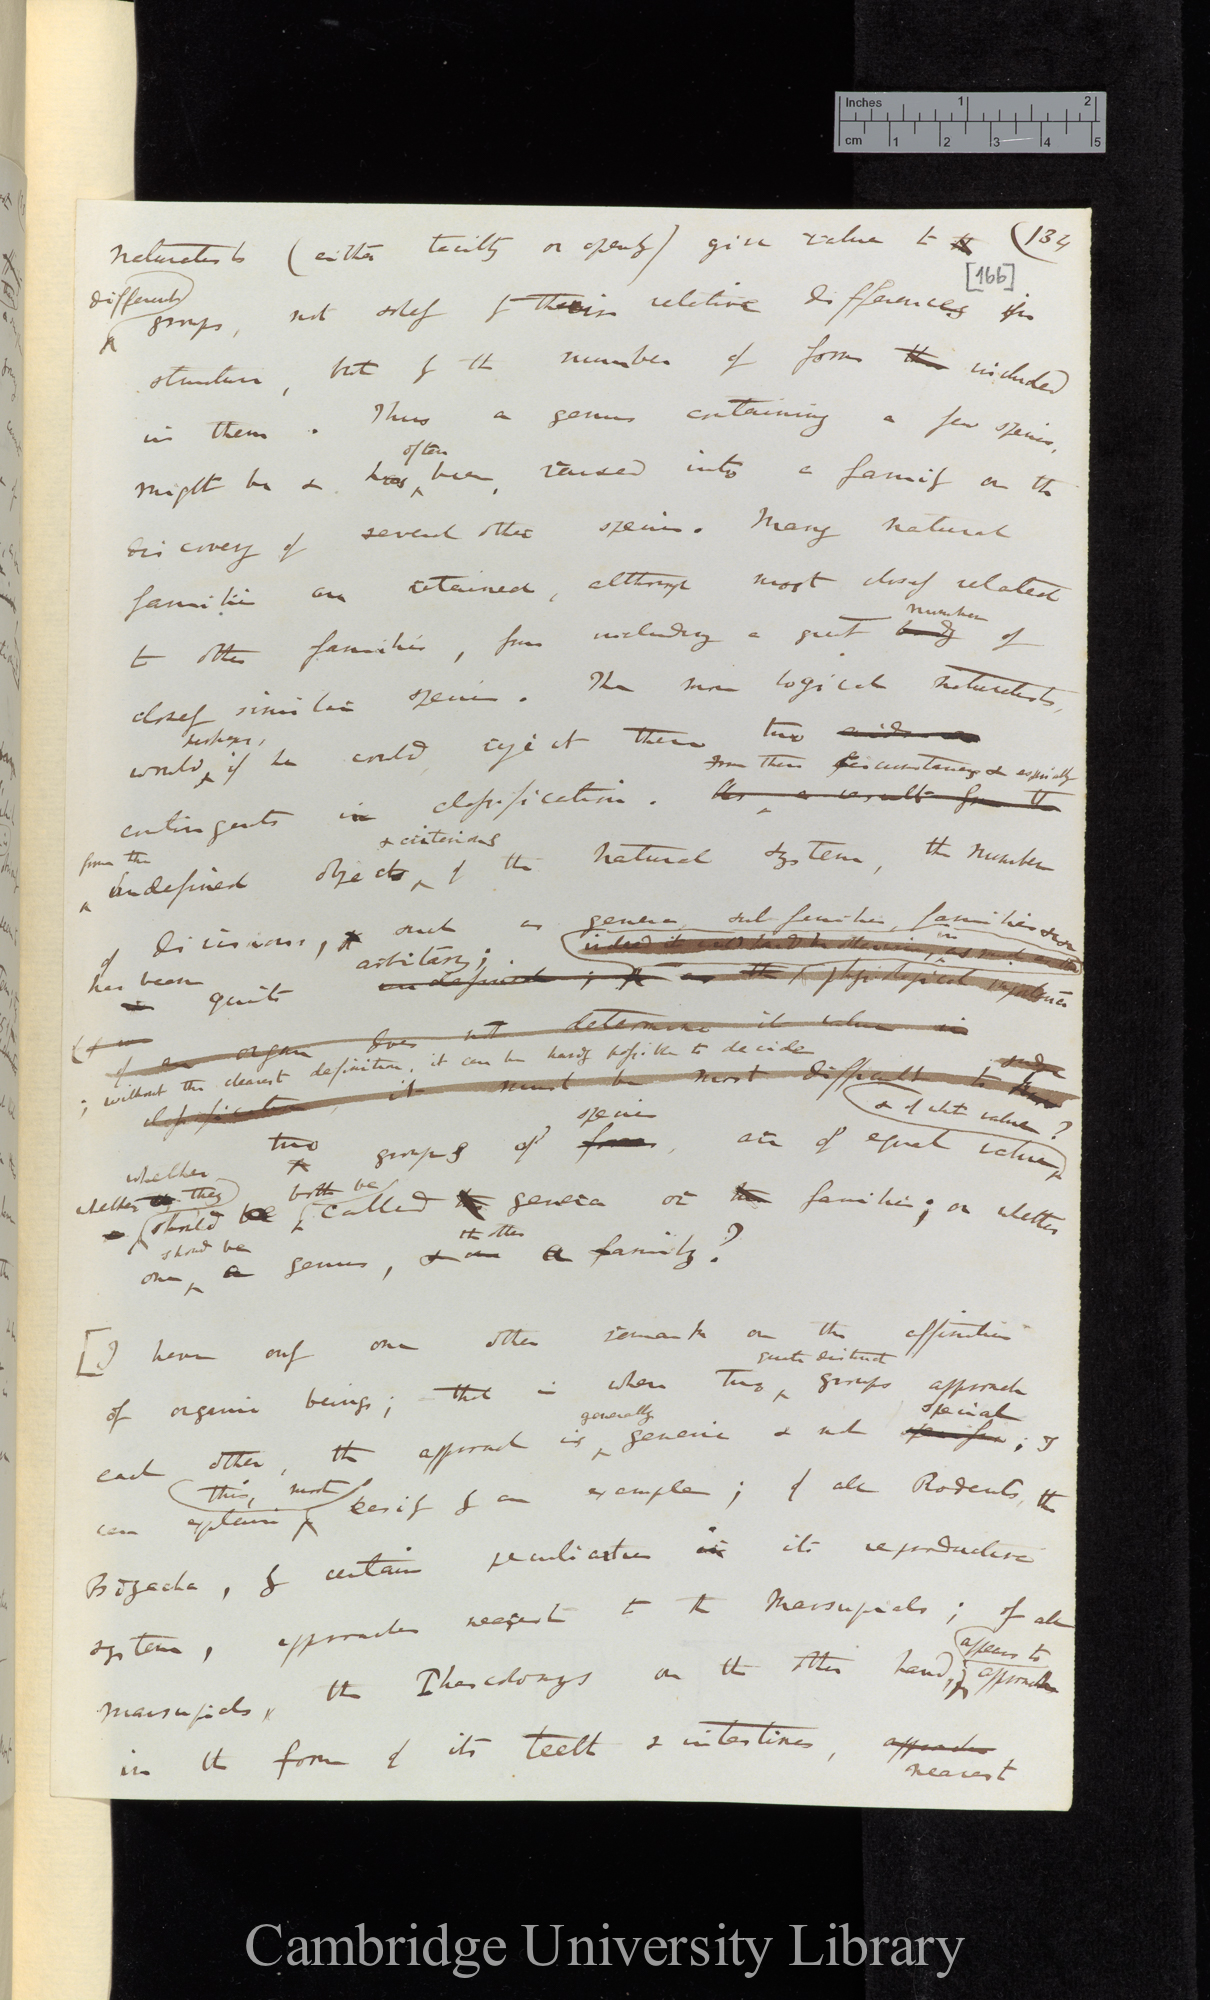 Inches 1 2
cm 1 2 3 4 5
(134
[166]
Naturalists (either tacitly or openly) give value to
different
groups, not solely by their relative differences in
structure, but by the number of forms included
in them. Thus a genus containing a few species,
often
might be & has been, raised into a family on the
discovery of several other species. Many natural
families are retained, although most closely related
number
to other families, from including a great body of
closely similar species. The more logical naturalists,
perhaps,
would, if he could, eject these two
from these circumstances & especially
contingents in classification. As a result from the
from the & criterions
undefined objects of the natural system, the number
of divisions, such as genera, sub families, families
has been arbitrary;
quite undefined; as the physiological importance
of an organ does not determine its value in
; without the clearest definition, it can be hardly possible to decide
classification, it must be most difficult to
& of what value?
species
whether two groups of forms, are of equal value,
whether they both be
should be called genera or families; or whether
should be the other
one, a genus, & one a family?
[I have only one other remark on the affinities
quite distinct
of organic beings; that is when two groups approach
generally special
each other, the approach is generic & not ; I
this, most
can explain easily by an example; of all Rodents, the
Bizcacha, by certain peculiarities in its reproductive
system, approaches nearest to the Marsupials; of all
appears to
Marsupials, the Phascolomys on the other hand, approach
in the form of its teeth & intestines, approaches
nearest
Cambridge University Library